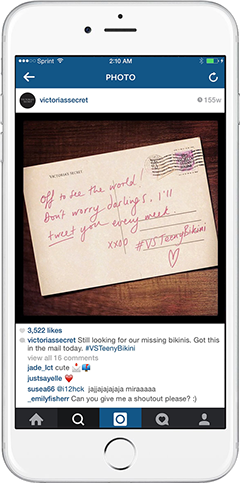 Sprint
2:10 AM
PHOTO
victoriassecret
155w
VICTORIA'S SECRET
Off to see the world!
Don't worry darlings, I'll
tweet you every
xxoo
#VSTeenyBikini
3,522 likes
victoriassecret Still looking for our missing bikinis. Got this
in the mail today. #VSTeenyBikini
view all 16 comments
jade_lct cute
justsayelle
susea66 @i12hck jajjajajajaja miraaaaa
_emilyfisherr Can you give me a shoutout please? :)